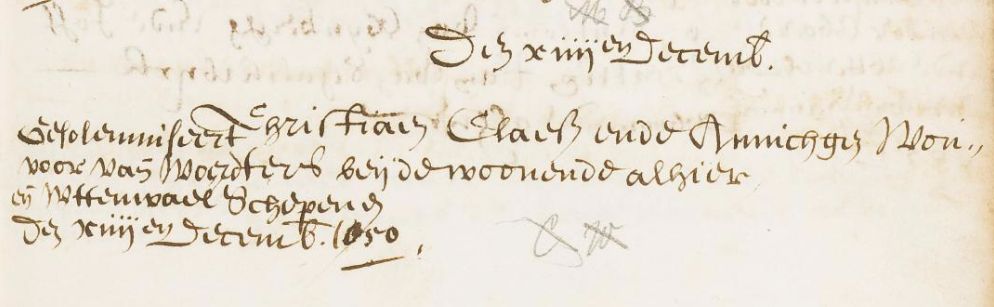 Den xiiijen Decemb.
Gesolemniseert Christiaen Claesz ende Annichgen Wou-
voor van Woerdters beijde woonende alhier
en Wttenwael Schepenen
den xiiijen Decemb. 1650